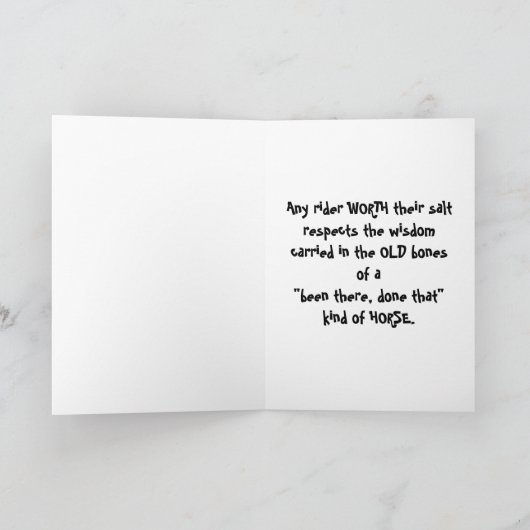 Any rider WORTH their salt
respects the wisdom
carried in the OLD bones
of a
"been there, done that"
kind of HORSE.